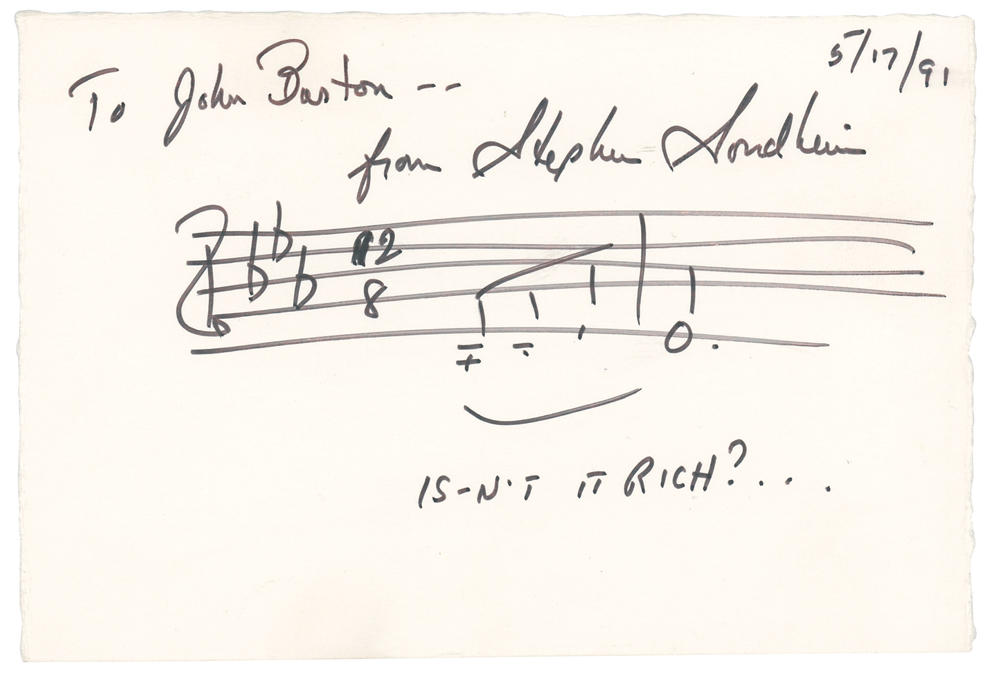 5/17/91
To John Barton --
from Stephen Sondheim
12
8
IS-N'T IT RICH?....